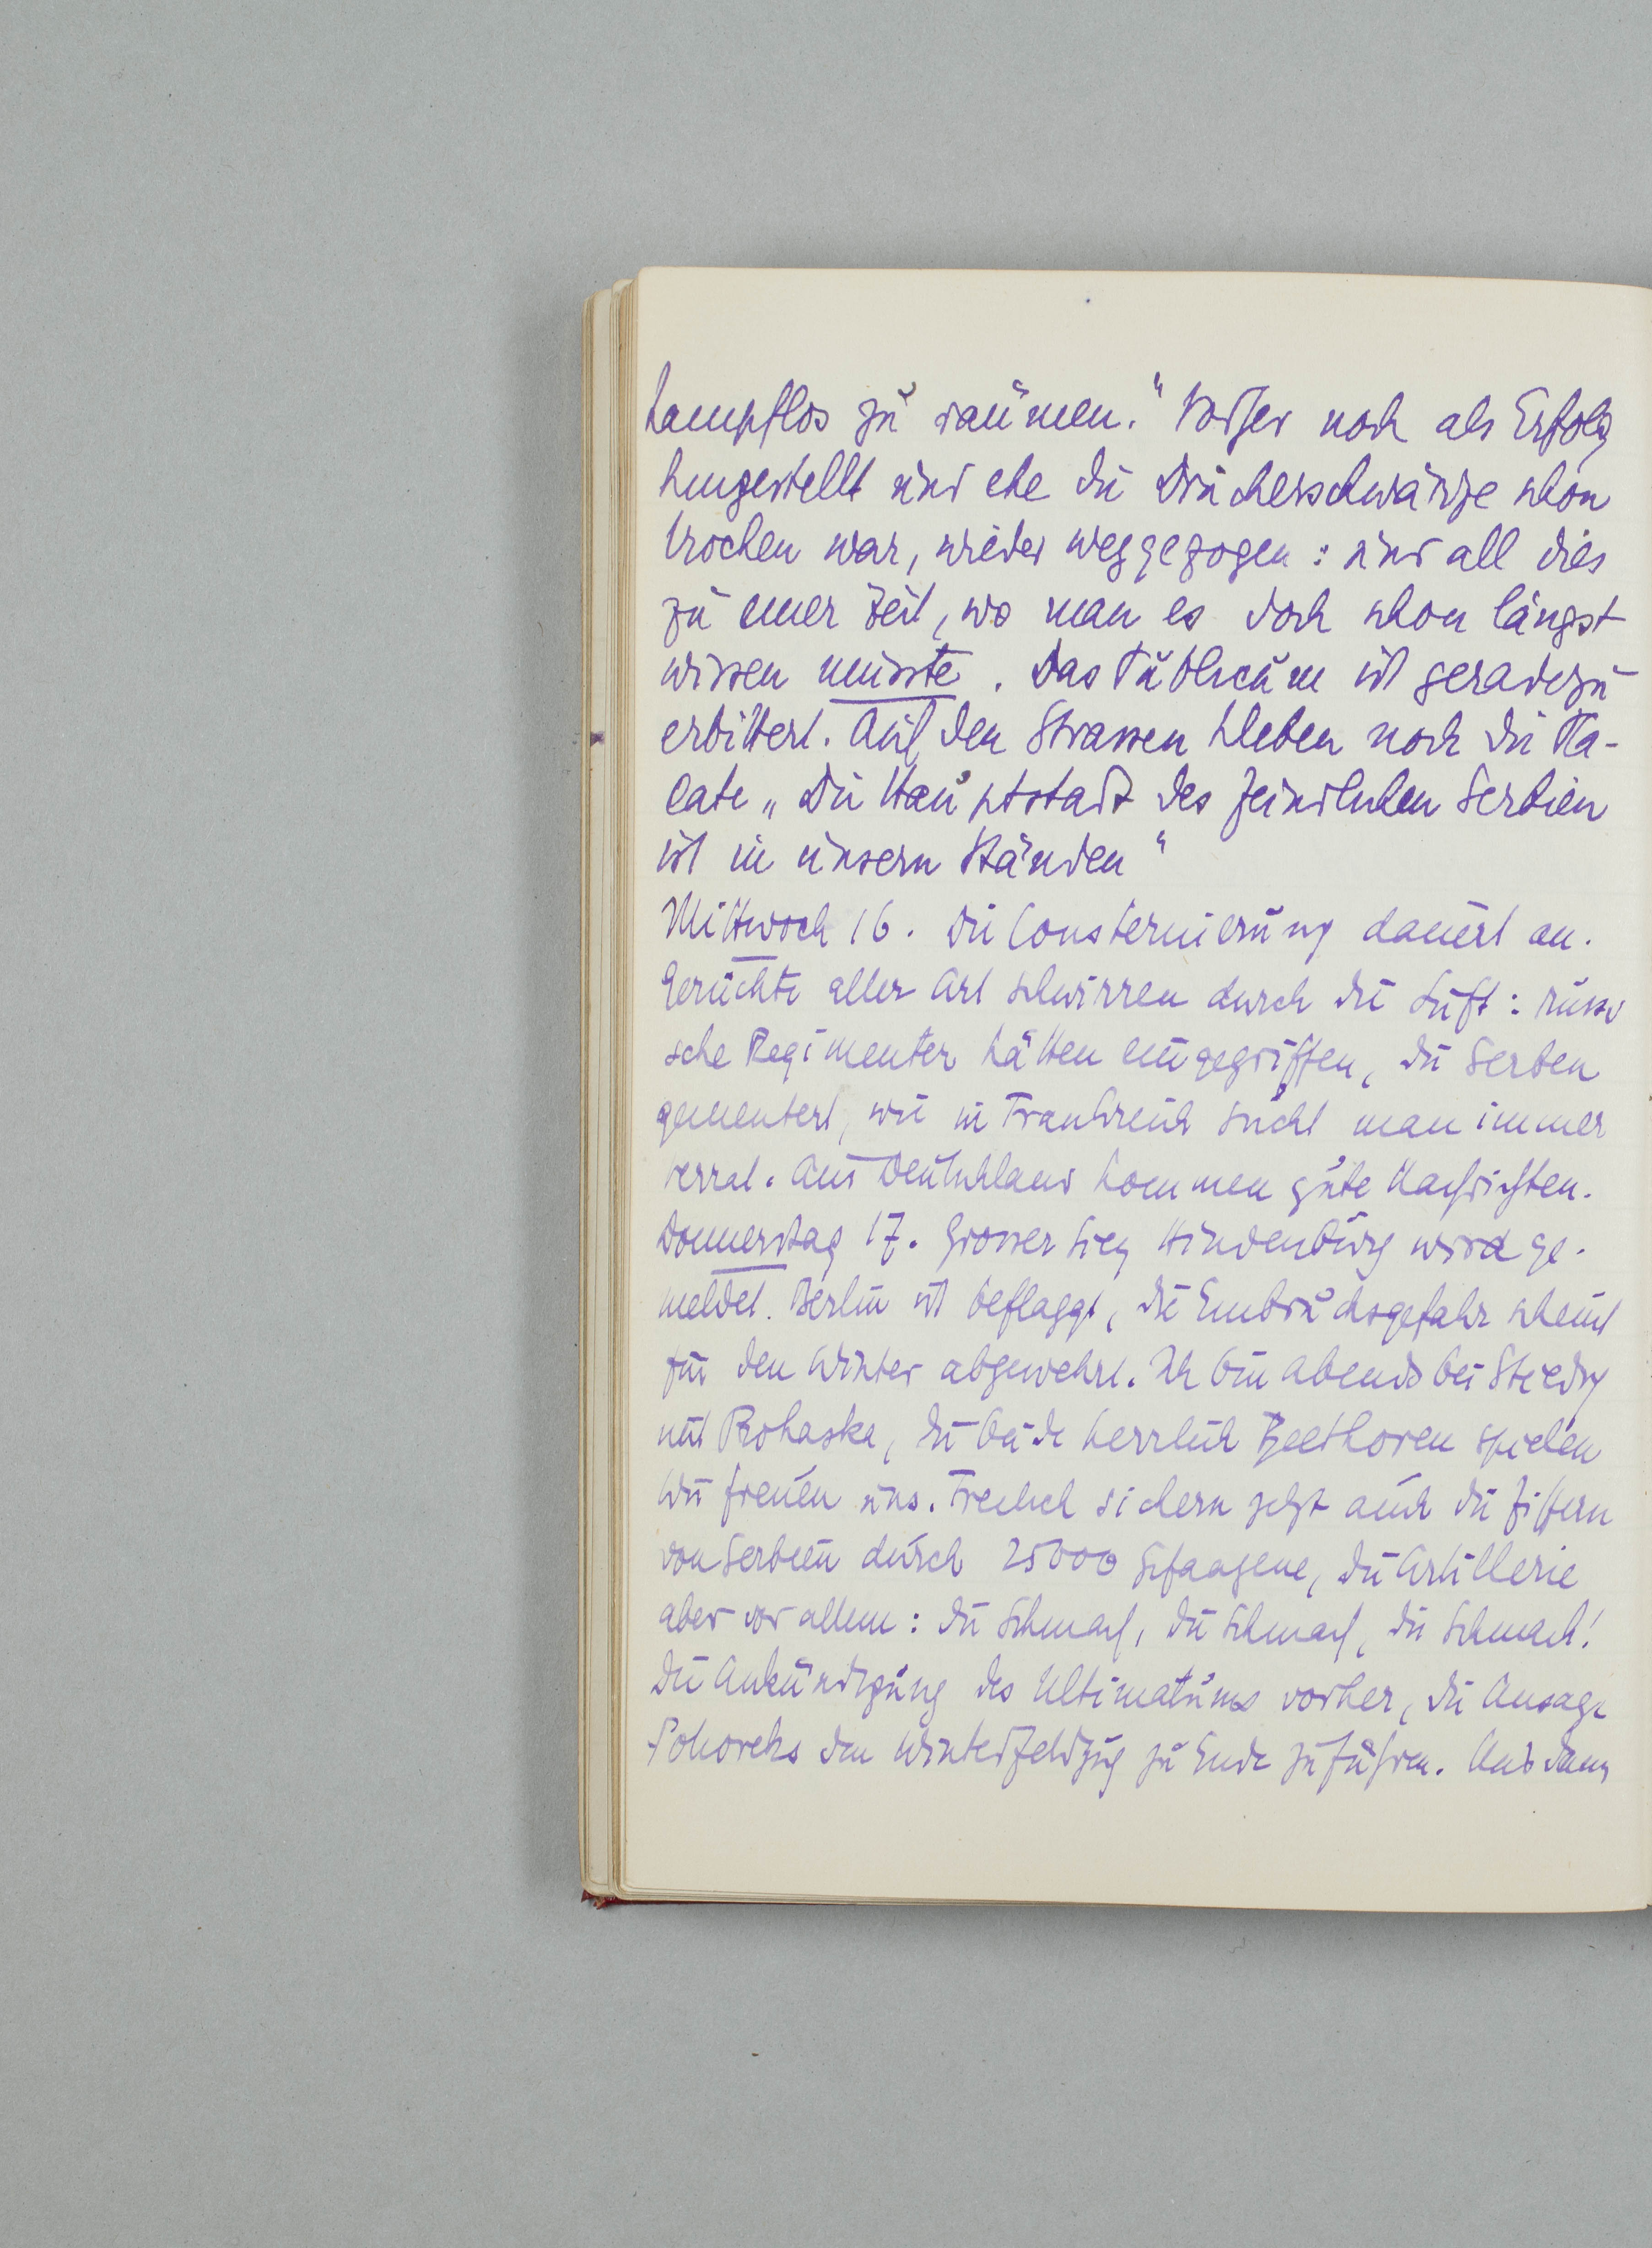 kampflos zu räumen." Vorher noch als Erfolg
hingestellt und ehe die Druckerschwärze schon
trocken war, wieder weggezogen: und all dies
zu einer Zeit, wo man es doch schon längst
wissen müsste. Das Publicum ist geradezu
erbittert. Auf den Strassen kleben noch die Pla-
cate „Die Hauptstadt des feindlichen Serbien
ist in unsern Händen"
Mittwoch 16. Die Consternierung dauert an.
Gerüchte aller Art schwirren durch die Luft: russi
sche Regimenter hätten eingegriffen, die Serben
gemeutert, wie in Frankreich sucht man immer
Verrat. Aus Deutschland kommen gute Nachrichten.
Donnerstag 17. Grosser Sieg Hindenburg wird ge-
meldet. Berlin ist beflaggt, die Einbruchsgefahr scheint
für den Winter abgewehrt. Ich bin Abends bei Stiedry
mit Prohaska, die beide herrlich Beethoven spielen
Wir freuen uns. Freilich sichern jetzt auch die Ziffern
von Serbien durch 25000 Gefangene, die Artillerie
aber vor allem: die Schmach, die Schmach, die Schmach!
Die Ankündigung des Ultimatums vorher, die Ansage
Potioreks den Winterfeldzug zu Ende zu führen. Und dann